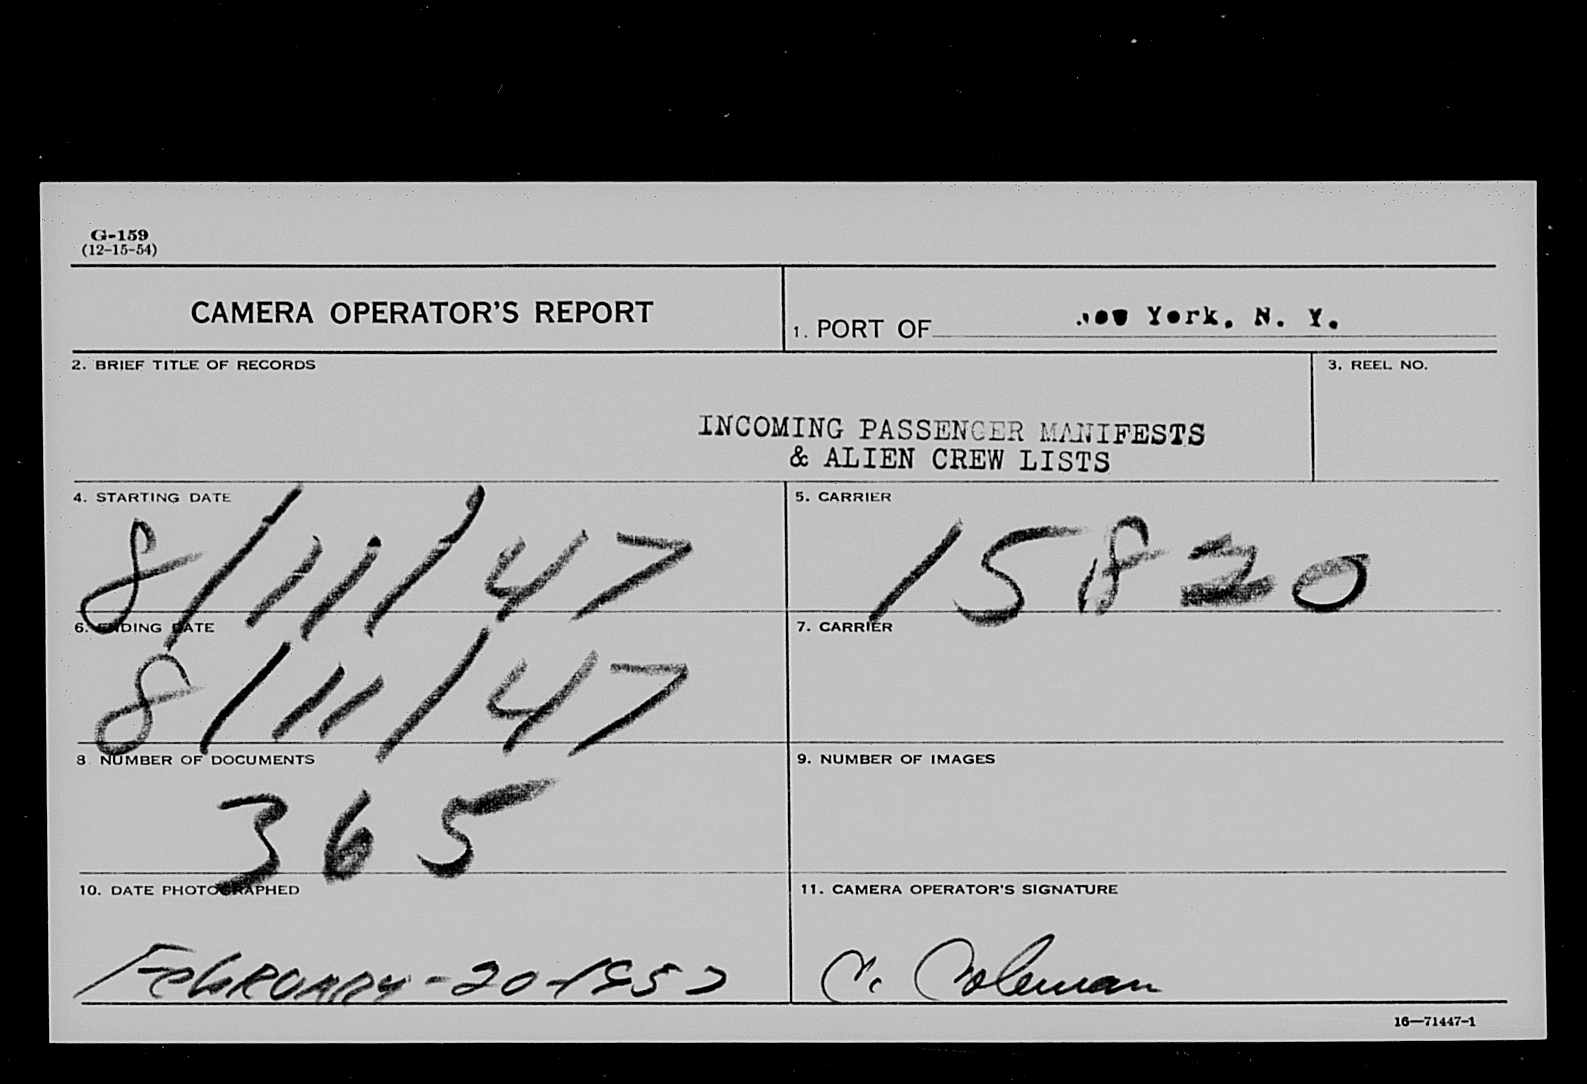 G-159
(12-15-54)
CAMERA OPERATOR'S REPORT
1. PORT OF New York, N. Y.
2. BRIEF TITLE OF RECORDS
3. REEL NO.
INCOMING PASSENGER MANIFESTS
& ALIEN CREW LISTS
4. STARTING DATE
8/11/47
5. CARRIER
15820
6. ENDING DATE
8/11/47
7. CARRIER
8 NUMBER OF DOCUMENTS
365
9. NUMBER OF IMAGES
10. DATE PHOTOGRAPHED
FEBRUARY-20-1957
11. CAMERA OPERATOR'S SIGNATURE
C. Coleman
16—71447-1